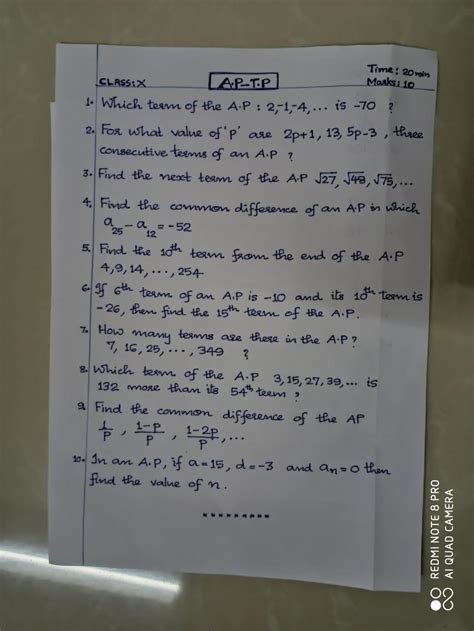 Time: 20 min
CLASS: X A.P-T.P Marks: 10
1. Which term of the A.P : 2,-1,-4,... is -70 ?
2. For what value of 'P' are 2p+1, 13, 5p-3, three
consecutive terms of an A.P ?
3. Find the next term of the A.P √27, √48, √75,...
4. Find the common difference of an A.P in which
a₂₅ - a₁₂ = -52
5. Find the 10th term from the end of the A.P
4,9,14,...,254
6. If 6th term of an A.P is -10 and its 10th term is
-26, then find the 15th term of the A.P.
7. How many terms are there in the A.P?
7, 16, 25, ..., 349 ?
8. Which term of the A.P 3,15,27,39,... is
132 more than its 54th term ?
9. Find the common difference of the AP
1/P, 1-P/P, 1-2P/P,...
10. In an A.P, if a=15, d=-3 and aₙ=0 then
find the value of n.
REDMI NOTE 8 PRO
AI QUAD CAMERA